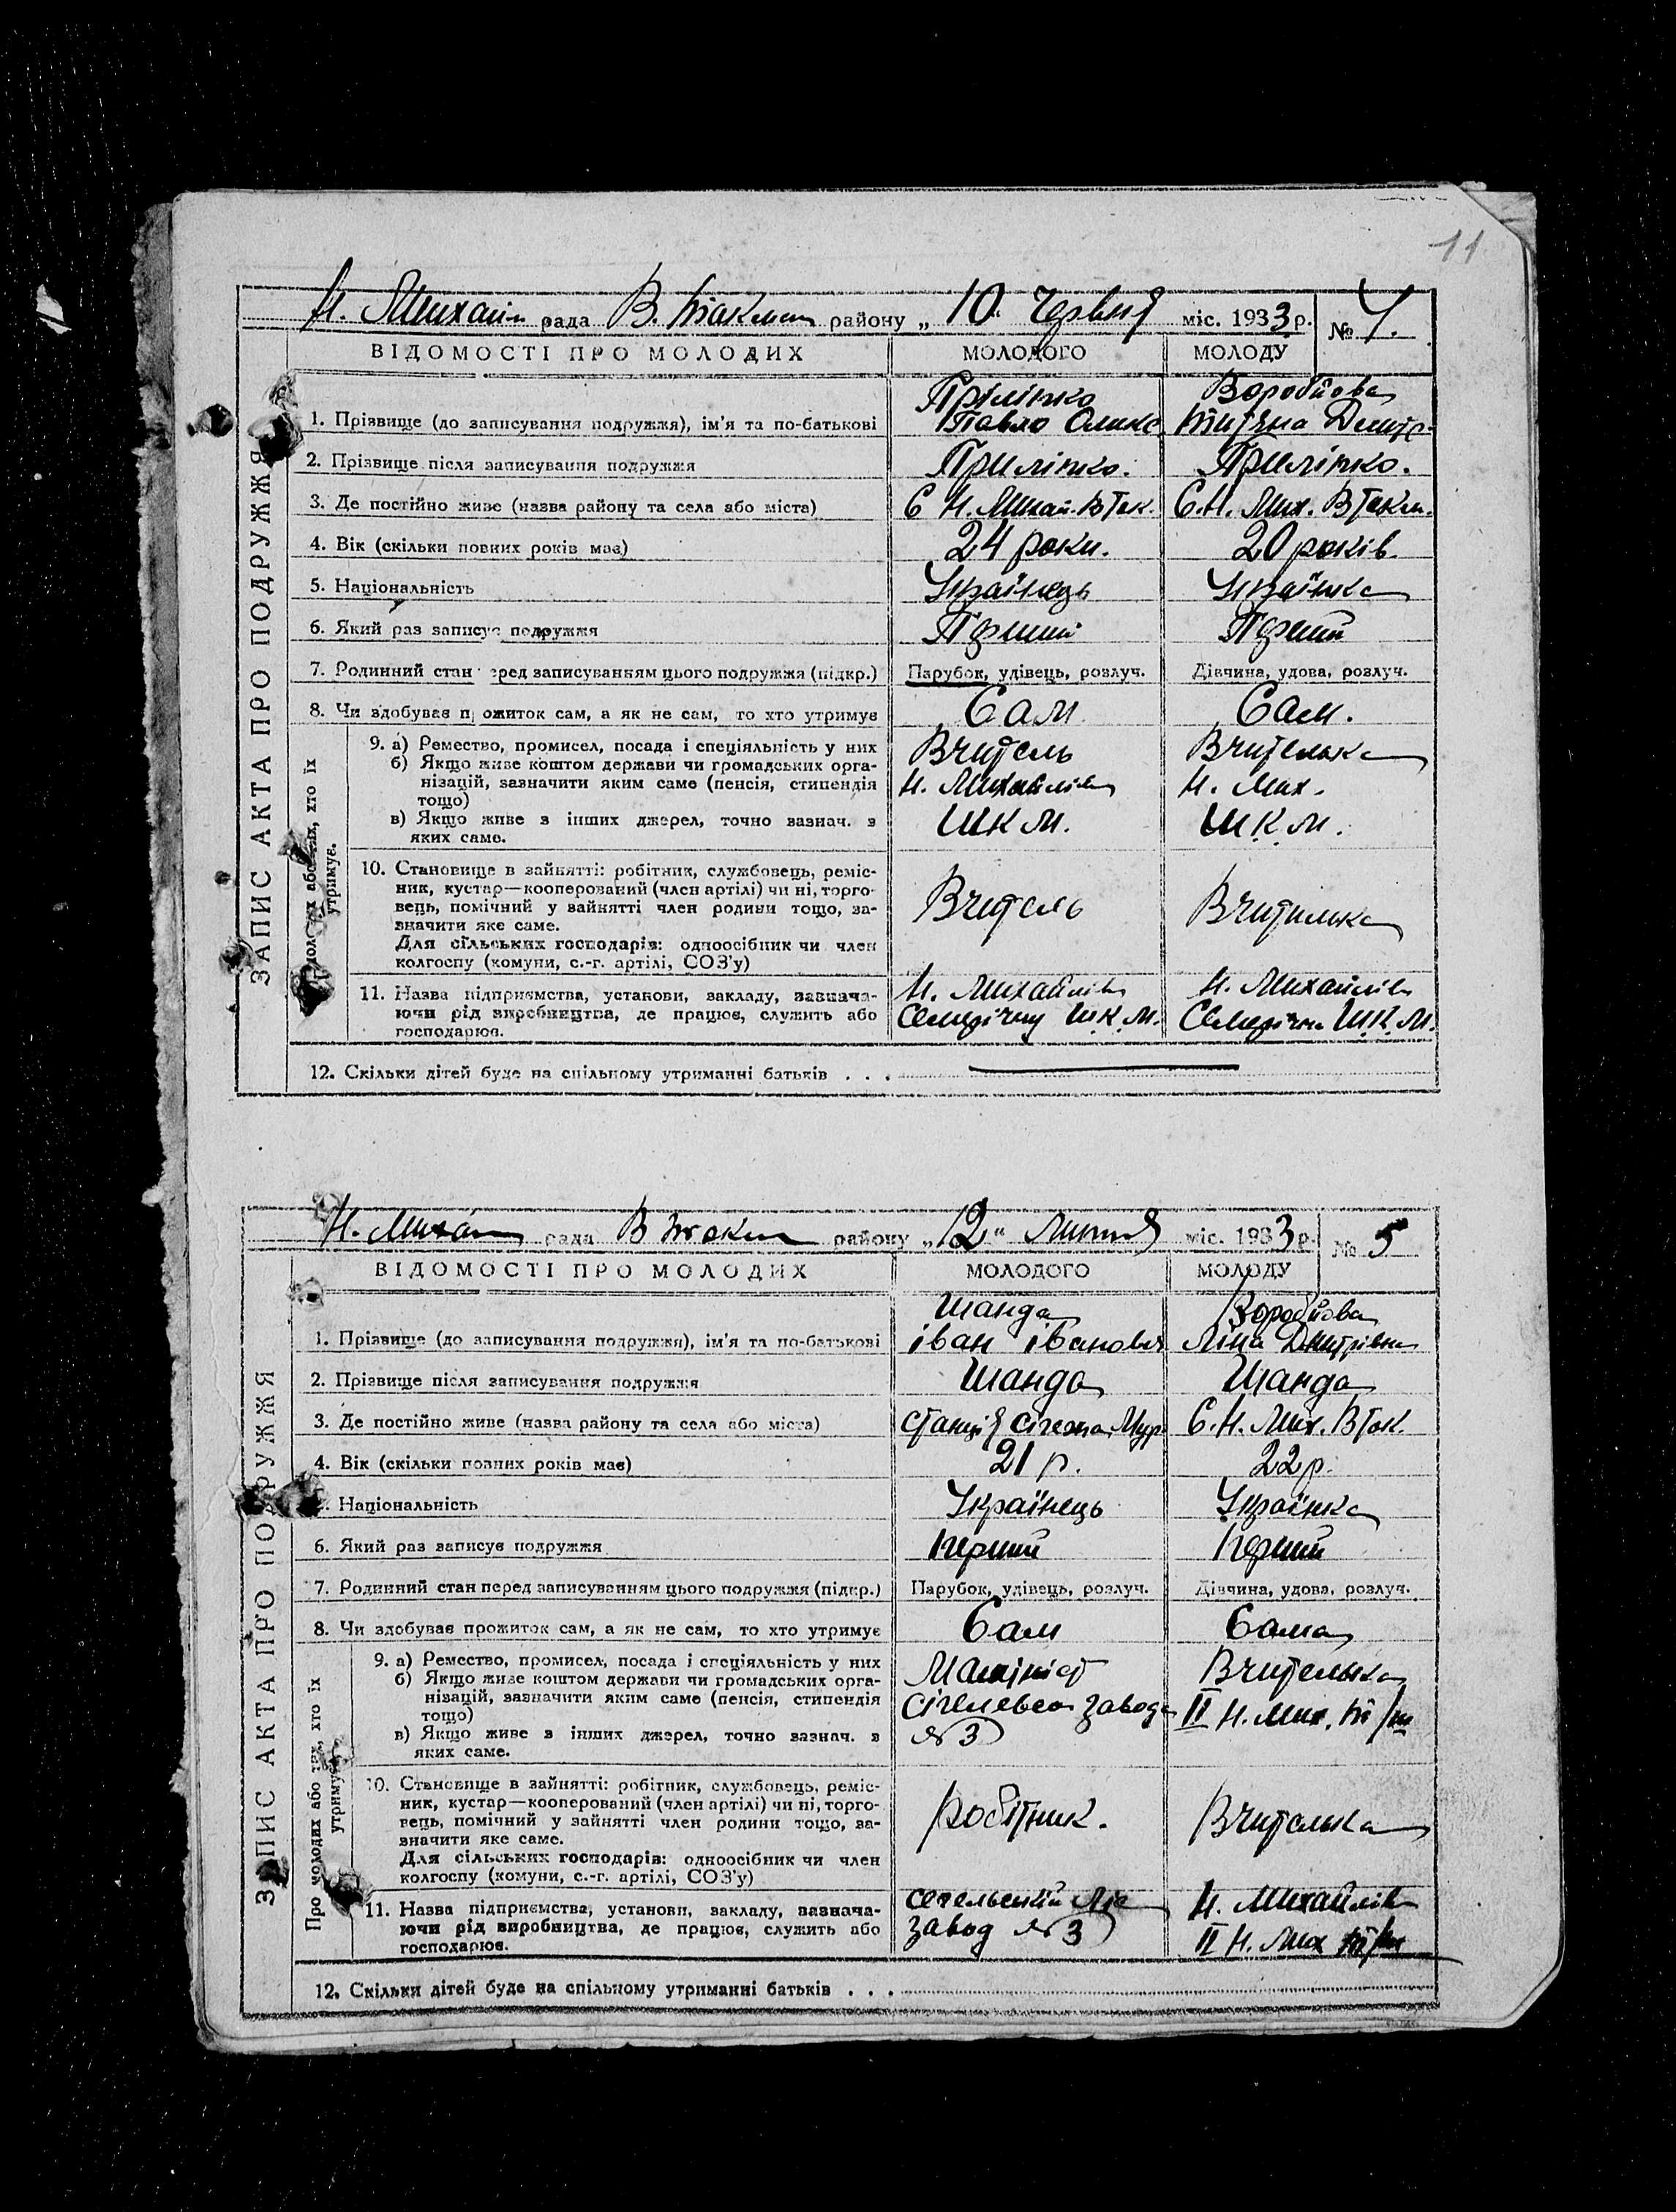 11
Н. Михайл рада В. Токмак району „ 10 червня міс. 1933 р. № 4.
ВІДОМОСТІ ПРО МОЛОДИХ МОЛОДОГО МОЛОДУ
ЗАПИС АКТА ПРО ПОДРУЖЖЯ
Прілінко Воробйова
1. Прізвище (до записування подружжя), ім'я та по-батькові Павло Олекс. Титяна Дмитр.
2. Прізвище після записування подружжя Прилінко. Прилінко.
3. Де постійно живе (назва району та села або міста) С Н. Михай. В Ток. С. Н. Мих. В Токм.
4. Вік (скільки повних років має) 24 роки. 20 років
5. Національність Українець Українка
6. Який раз записує подружжя Перший Перший
7. Родинний стан перед записуванням цього подружжя (підкр.) Парубок, удівець, розлуч. Дівчина, удова, розлуч.
8. Чи здобував прожиток сам, а як не сам, то хто утримує Сам Сам.
Про молодих або тих, хто їх утримує.
9. а) Ремество, промисел, посада і специяльність у них Вчитель Вчителька
б) Якщо живе коштом держави чи громадських орга-
нізацій, зазначити яким саме (пенсія, стипендія Н. Михайлів Н. Мих.
тощо)
в) Якщо живе з інших джерел, точно зазнач. з ШКМ. Ш.К.М.
яких саме.
10. Становище в зайнятті: робітник, службовець, реміс-
ник, кустар—кооперований (член артілі) чи ні, торго-
вець, помічний у зайнятті член родини тощо, за- Вчитель Вчителька
значити яке саме.
Для сільських господарів: одноосібник чи член
колгоспу (комуни, с.-г. артілі, СОЗ'у)
11. Назва підприємства, установи, закладу, зазнача- Н. Михайлів Н. Михайлів
ючи рід виробництва, де працює, служить або Семирічну Ш.К.М. Семирічн Ш.К.М.
господарює.
12. Скільки дітей буде на спільному утриманні батьків . . .
Н. Михай рада В Токм району „ 12 " Липня міс. 1933 р. № 5
ВІДОМОСТІ ПРО МОЛОДИХ МОЛОДОГО МОЛОДУ
ЗАПИС АКТА ПРО ПОДРУЖЖЯ
Шанда Воробйова
1. Прізвище (до записування подружжя), ім'я та по-батькові Іван Іванович Ліна Дмитрівна
2. Прізвище після записування подружжя Шанда Шанда
3. Де постійно живе (назва району та села або міста) станція Сігежа, Мур. С. Н. Мих. В Ток.
4. Вік (скільки повних років має) 21 р. 22 р.
5. Національність Українець Українка
6. Який раз записує подружжя Перший Перший
7. Родинний стан перед записуванням цього подружжя (підкр.) Парубок, удівець, розлуч. Дівчина, удова, розлуч.
8. Чи здобував прожиток сам, а як не сам, то хто утримує Сам Сама
Про молодих або тих, хто їх утримує.
9. а) Ремество, промисел, посада і специяльність у них Машініст Вчителька
б) Якщо живе коштом держави чи громадських орга-
нізацій, зазначити яким саме (пенсія, стипендія завода II Н. Мих.
тощо)
в) Якщо живе з інших джерел, точно зазнач. з № 3
яких саме.
10. Становище в зайнятті: робітник, службовець, реміс-
ник, кустар—кооперований (член артілі) чи ні, торго-
вець, помічний у зайнятті член родини тощо, за- робітник. Вчителька
значити яке саме.
Для сільських господарів: одноосібник чи член
колгоспу (комуни, с.-г. артілі, СОЗ'у)
11. Назва підприємства, установи, закладу, зазнача- Н. Михайлів
ючи рід виробництва, де працює, служить або завод № 3 II Н. Мих
господарює.
12. Скільки дітей буде на спільному утриманні батьків . . .